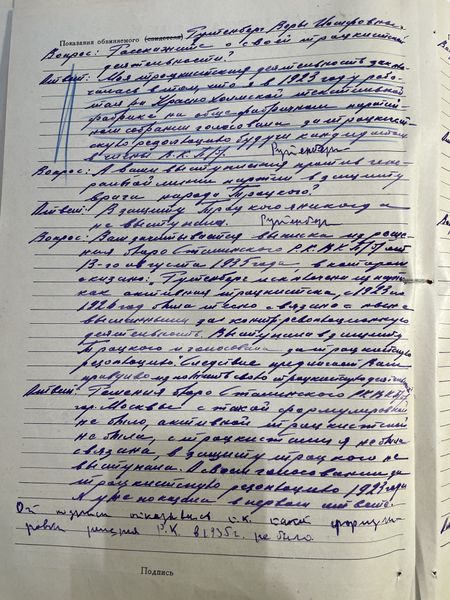 Показания обвиняемого (свидетеля) Рутенберг Веры Иосифовны
Вопрос: Расскажите о своей троцкистской
деятельности?
Ответ: Моя троцкистская деятельность заклю-
чалась в том что я в 1923 году рабо-
тая на Краснохолмской текстильной
фабрике на обще-фабричном партий-
ном собрании голосовала за троцкист-
скую резолюцию будучи кандидатом
в члены В.К.П/б/. Рутенберг
Вопрос: А ваши выступления против ген-
ральной линии партии в защиту
врага народа Троцкого?
Ответ: В защиту Троцкого я никогда
не выступала. Рутенберг
Вопрос: Вам зачитывается выписка из реше-
ния бюро Сталинского Р.К.В.К.П/б/ от
13-го августа 1935 года в котором
сказано: "Рутенберг исключена из партии
как активная троцкистка, с 1923 по
1926 год была тесно связана с ныне
высланными за контрреволюционную
деятельность. Выступала в защиту
Троцкого и голосовала за троцкистскую
резолюцию". Следствие предлагает Вам
правдиво изложить свою троцкистскую деятельность
Ответ: Решения бюро Сталинского Р.К.В.К.П/б/
гор. Москвы с такой формулировкой
не было, активной троцкисткой
не была, с троцкистами я не была
связана, в защиту троцкого не
выступала. О своем голосовании за
троцкистскую резолюцию 1923 года
я уже показала в первом ответе.
От подписи отказалась т.к. такой формули-
ровки решения Р.К. в 1935 г. не было
Подпись